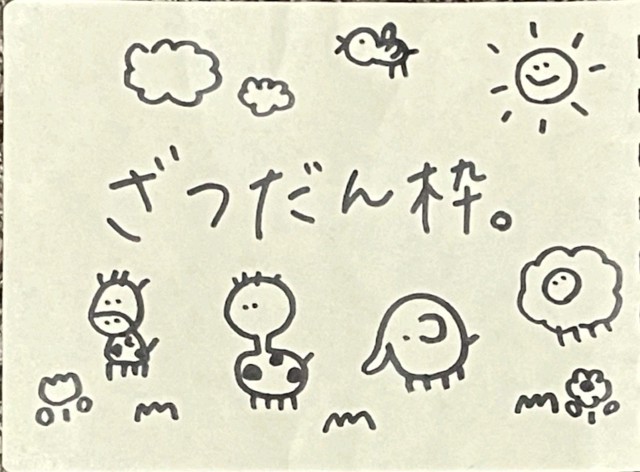 ざつだん枠。